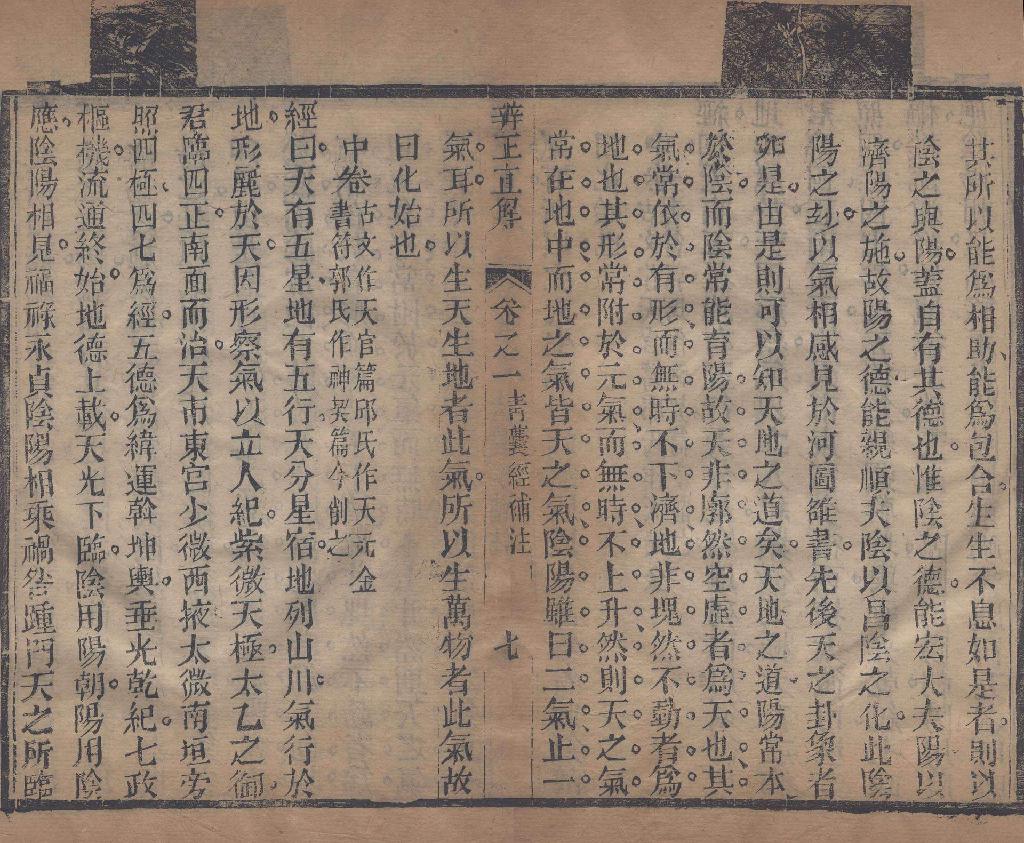 其所以能爲相助能爲包含生生不息如是者則以
陰之與陽蓋自有其德也惟陰之德能宏大夫陽以
濟陽之施故陽之德能親順夫陰以昌陰之化此陰
陽之妙以氣相感見於河圖雒書先後天之卦象者
如是由是則可以知天地之道矣天地之道陽常本
於陰而陰常能育陽故天非廓然空虛者爲天也其
氣常依於有形而無時不下濟地非塊然不動者爲
地也其形常附於元氣而無時不上升然則天之氣
常在地中而地之氣皆天之氣陰陽雖曰二氣止一
辨正直解 卷之一 青囊經補註 七
氣耳所以生天生地者此氣所以生萬物者此氣故
曰化始也
中卷 古文作天官篇邱氏作天元金
書符郭氏作神契篇今削之
經曰天有五星地有五行天分星宿地列山川氣行於
地形麗於天因形察氣以立人紀紫微天極太乙之御
君臨四正南面而治天市東宮少微西掖太微南垣旁
照四極四七爲經五德爲緯運斡坤輿垂光乾紀七政
樞機流通終始地德上載天光下臨陰用陽朝陽用陰
應陰陽相見福祿永貞陰陽相乘禍咎踵門天之所臨